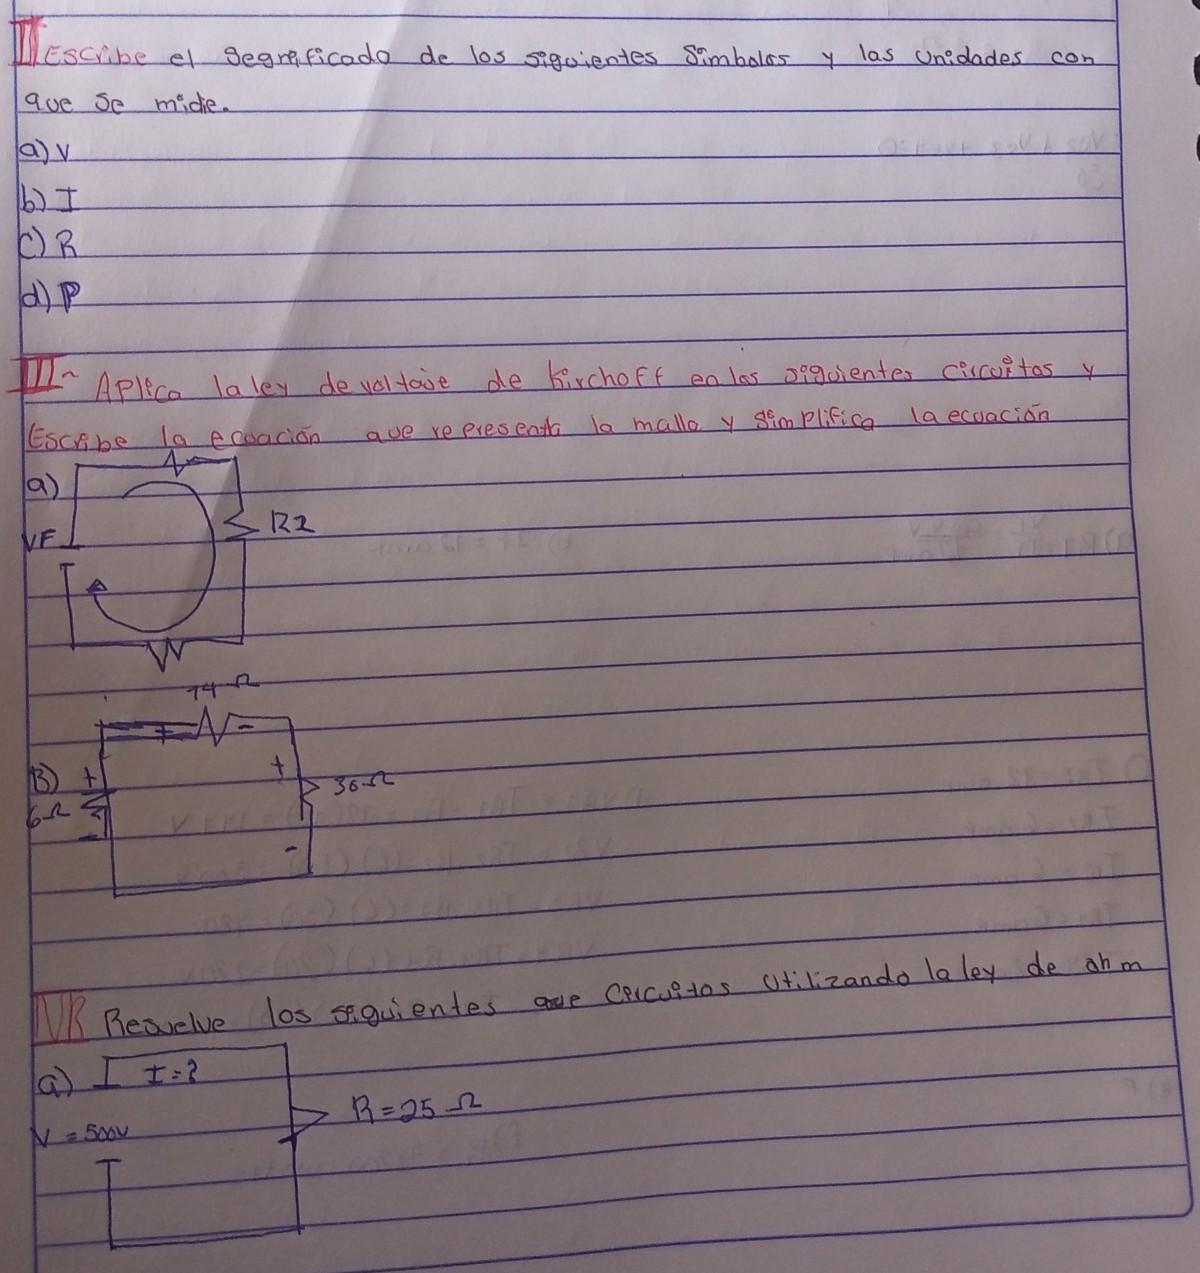 II Escribe el Segnificado de los siguientes Simbolos y las Unidades con
que se midie.
a) V
b) I
c) R
d) P
III- Aplica la ley de voltaje de Kirchoff en los siguientes circuitos y
Escribe la ecuación que representa la malla y simplifica la ecuación
a)
VF
R2
74 Ω
+ -
B) +
+
36Ω
6Ω
-
-
Resuelve los siguientes que Circuitos Utilizando la ley de ohm
a) I=?
R=25 Ω
V = 500V